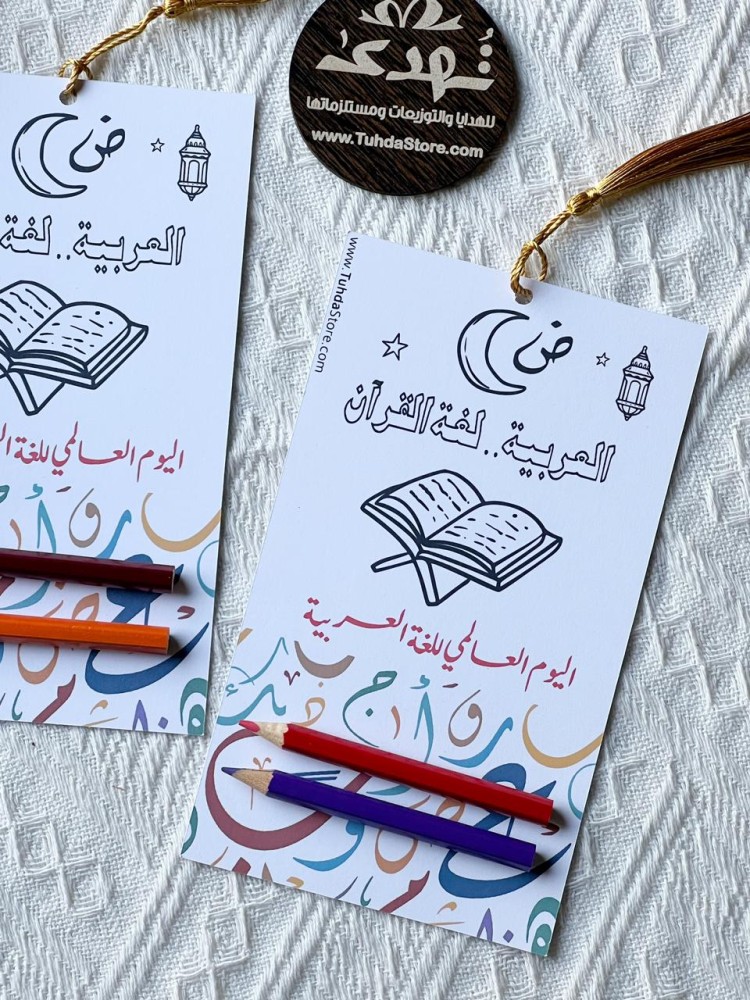 تُهدى
للهدايا والتوزيعات ومستلزماتها
www.TuhdaStore.com
ض
العربية .. لغة
اليوم العالمي للغة
www.TuhdaStore.com
ض
العربية .. لغة القرآن
اليوم العالمي للغة العربية